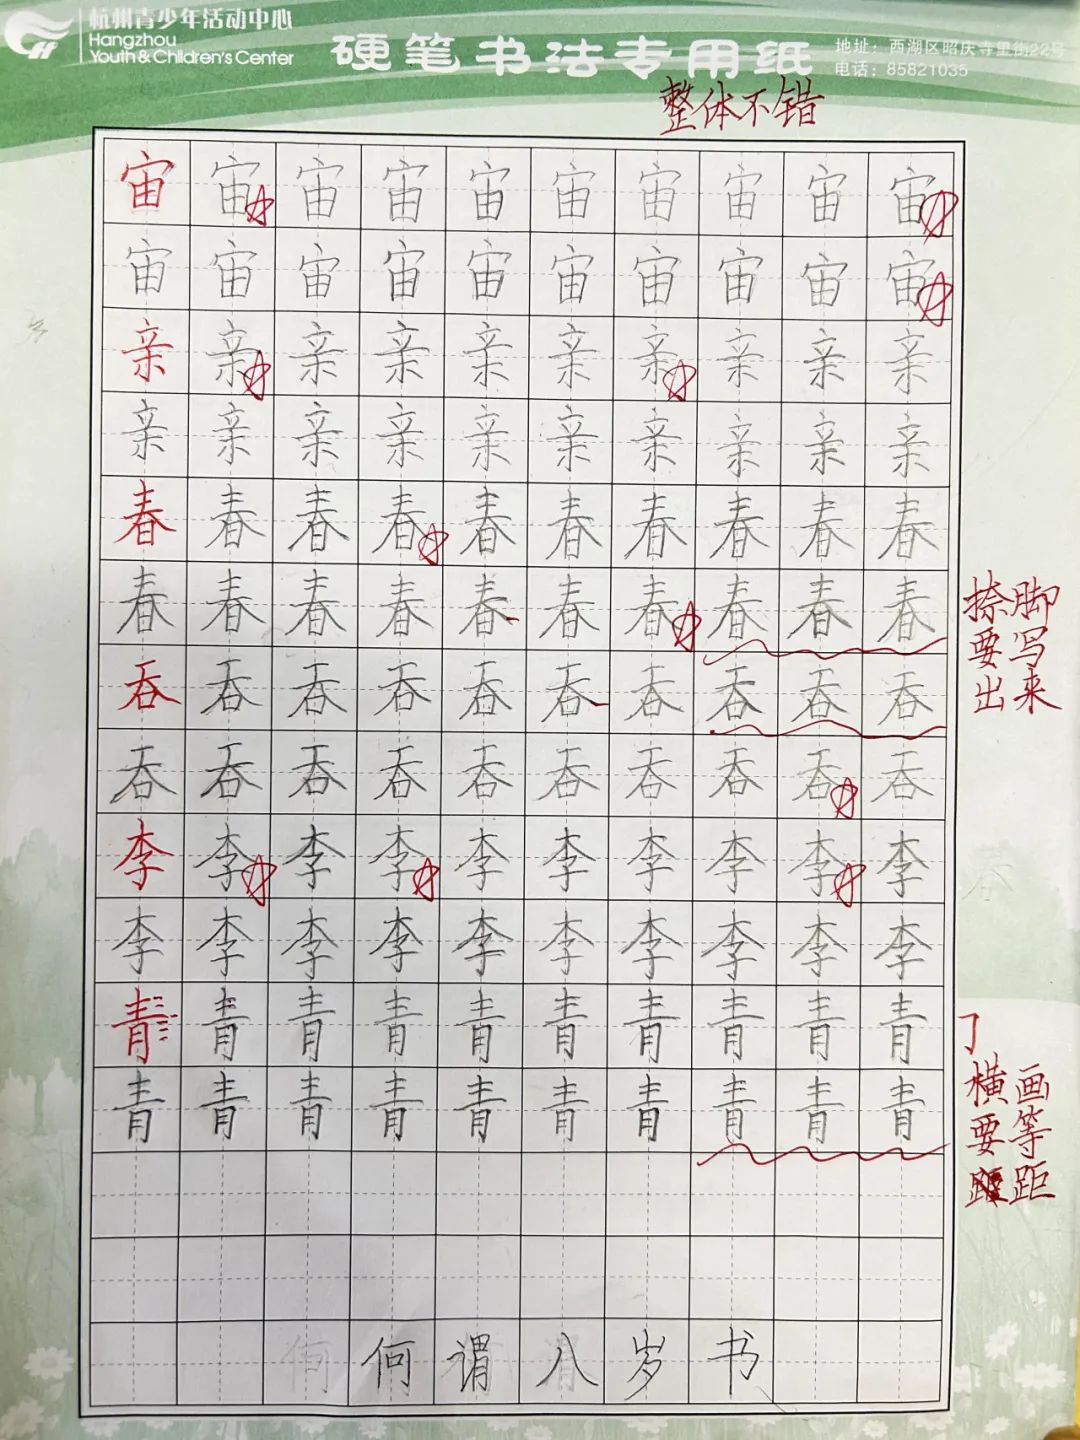 杭州青少年活动中心
Hangzhou
Youth & Children's Center
硬笔书法专用纸
地址：西湖区昭庆寺里街22号
电话：85821035
整体不错
宙宙宙宙宙宙宙宙宙宙
宙宙宙宙宙宙宙宙宙宙
亲亲亲亲亲亲亲亲亲亲
亲亲亲亲亲亲亲亲亲亲
春春春春春春春春春春
春春春春春春春春春春
捺脚
要写
出来
吞吞吞吞吞吞吞吞吞吞
吞吞吞吞吞吞吞吞吞吞
李李李李李李李李李李
李李李李李李李李李李
青青青青青青青青青青
青青青青青青青青青青
横画
要等
距
何谓八岁书